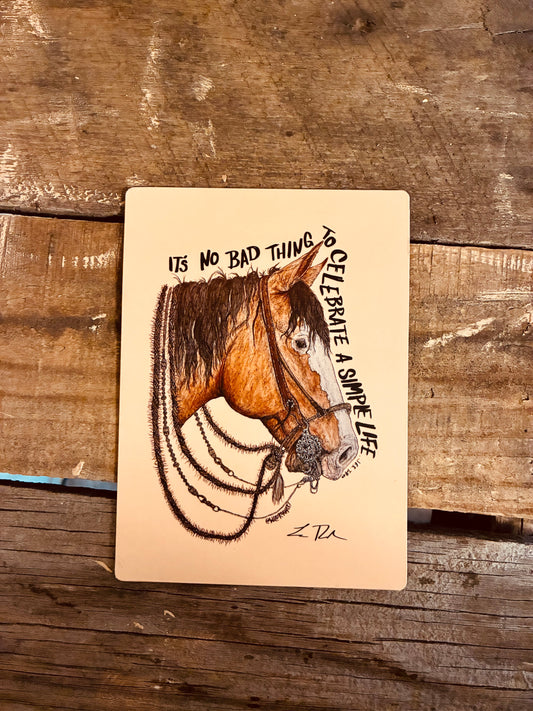 IT'S NO BAD THING TO CELEBRATE A SIMPLE LIFE